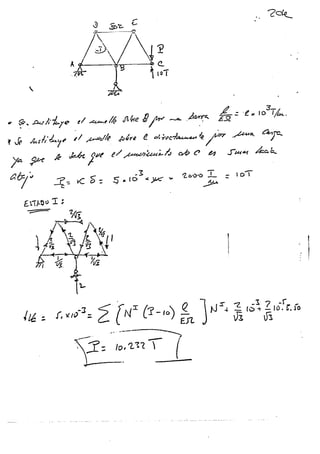 D 50℃ C
I P
A B C
10T
• Se sustituye el muelle sobre B por una barra ℓ/EΩ = 2·10⁻³ T/m.
• Se sustituye el muelle sobre C directamente por una carga
ya que se sabe que el movimiento de C es 5mm hacia
abajo
P = K δ = 5·10⁻³ · 2000 T/m = 10T
ESTADO I:
2/√3
1
1/√3 1/√3
2
5.×10⁻³ = Σ [N^I (P-10) ℓ/EΩ] N^I + 2/√3 10⁻³ + 2/√3 10⁻⁵·5·50
P = 10.232 T